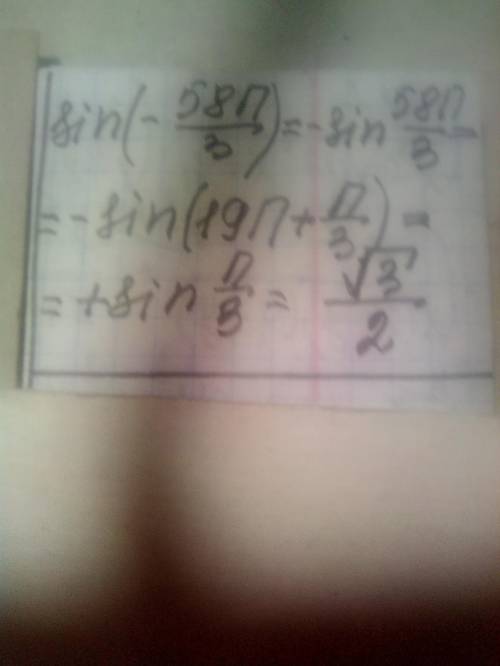 sin(-58π/3)=-sin 58π/3=
=-sin(19π+π/3)=
=+sin π/3=√3/2